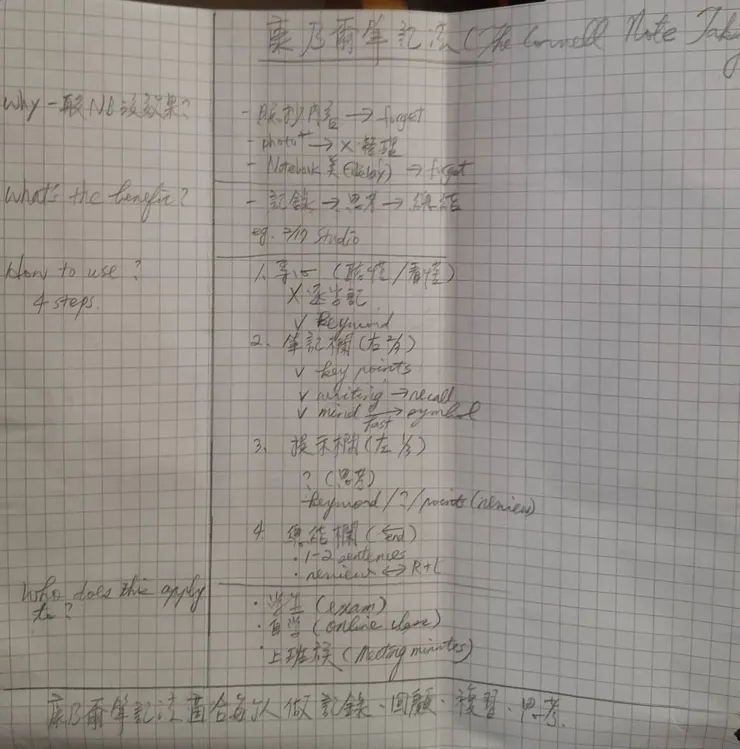 康乃爾筆記法 (The Cornell Note Tak
Why 一般NB沒效果?
- 照抄內容 → forget
- photo → X 整理
- Notebook 美 → forget
What's the benefit?
- 記錄 → 思考 → 總結
eg. Studio
How to use?
4 steps.
1. 專心 (聽懂/看懂)
X 逐字記
v keyword
2. 筆記欄 (右 2/3)
v key points
v writing → recall
v mind → symbol
fast
3. 提示欄 (左 1/3)
? (思考)
keyword / ? / points (review)
4. 總結欄 (end)
· 1-2 sentences
· review ↔ R+L
Who does this apply
to?
· 学生 (exam)
· 自学 (online class)
· 上班族 (Meeting minutes)
康乃爾筆記法適合每人做記錄、回顧、複習、思考.